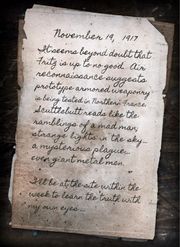 November 19, 1917
It seems beyond doubt that
Fritz is up to no good. Air
reconnaissance suggests
prototype armored weaponry
is being tested in Northern France.
Scuttlebutt reads like the
ramblings of a mad man;
strange lights in the sky—
a mysterious plague...
even giant metal men.
I'll be at the site within the
week to learn the truth with
my own eyes...